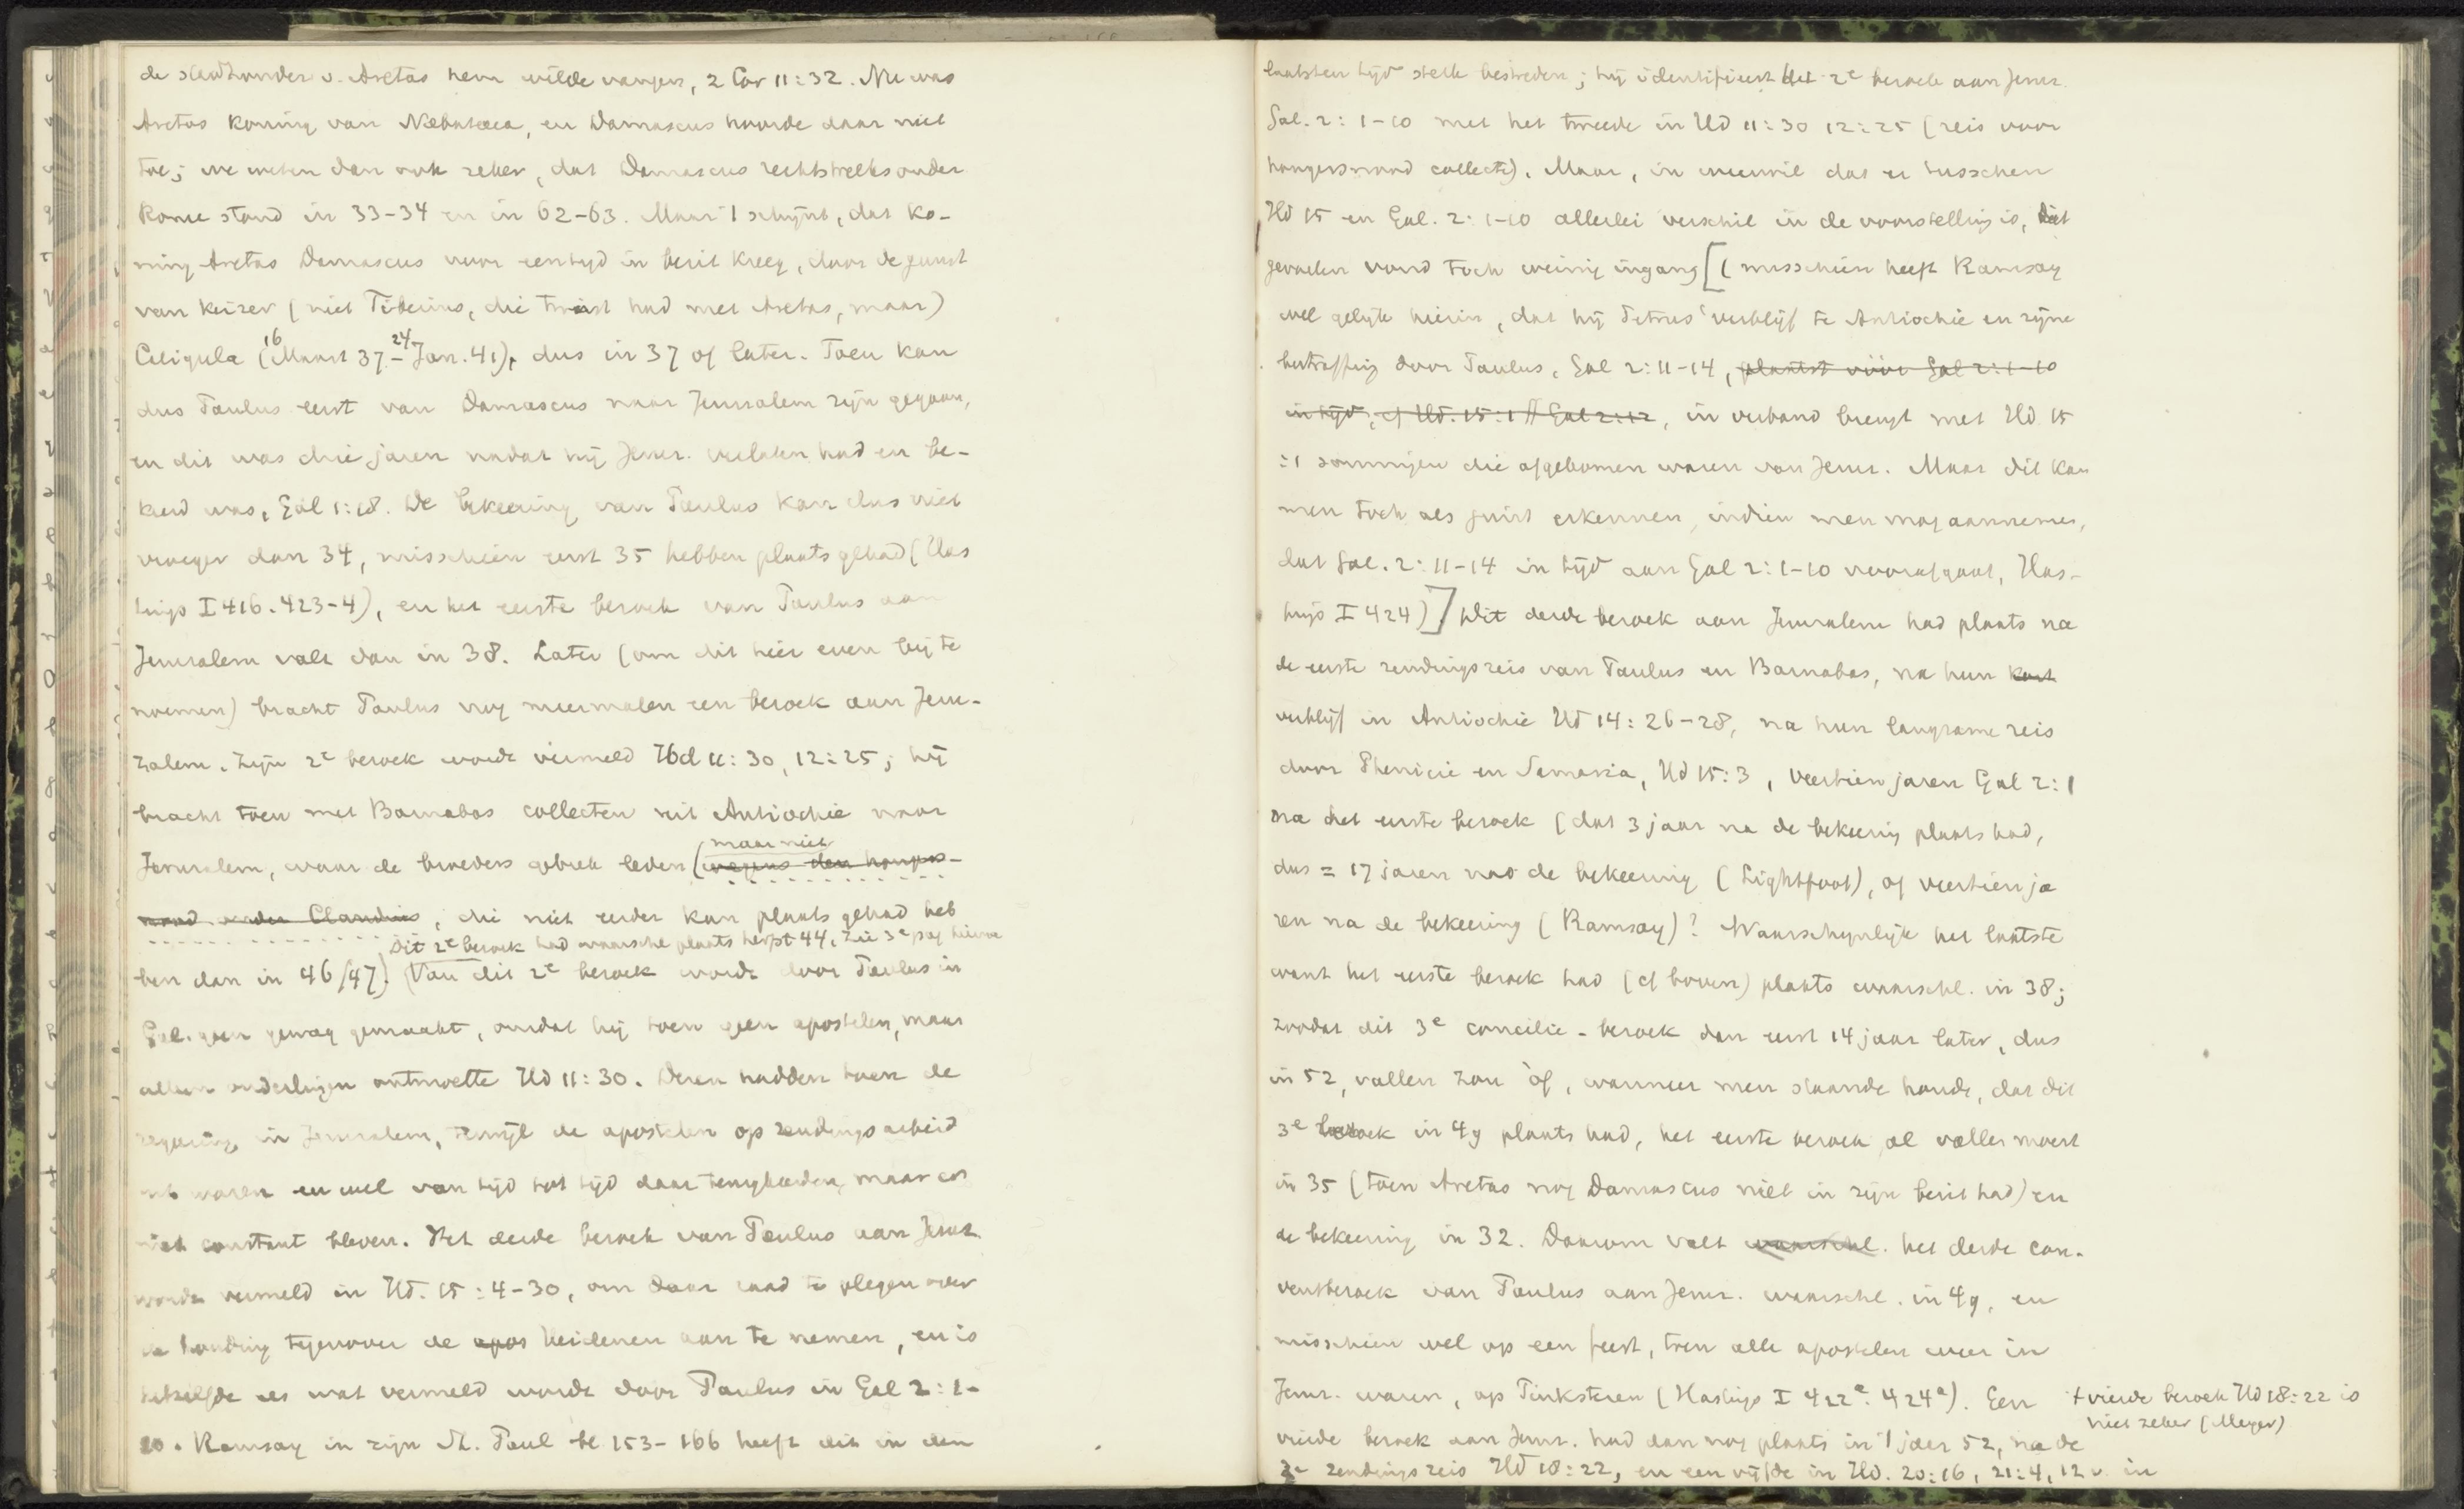 de stadhouder v. Aretas hem wilde vangen, 2 Cor 11:32. Nu was
Aretas koning van Nabataea, en Damascus hoorde daar niet
toe; we weten dan ook zeker, dat Damascus rechtstreeks onder
Rome stond in 33-34 en in 62-63. Maar 't schijnt, dat ko-
ning Aretas Damascus voor een tijd in bezit kreeg, door de gunst
van keizer (niet Tiberius, die twist had met Aretas, maar)
Caligula (16 Maart 37 - 24 Jan. 41), dus in 37 of later. Toen kan
dus Paulus eerst van Damascus naar Jeruzalem zijn gegaan,
en dit was drie jaren nadat hij Jeruz. verlaten had en be-
keerd was, Gal 1:18. De bekeering van Paulus kan dus niet
vroeger dan 34, misschien eerst 35 hebben plaats gehad (Has
tings I 416. 423-4), en het eerste bezoek van Paulus aan
Jeruzalem valt dan in 38. Later (om dit hier even bij te
noemen) bracht Paulus nog meermalen een bezoek aan Jeru-
zalem. Zijn 2e bezoek wordt vermeld Hd 11:30, 12:25; hij
bracht toen met Barnabas collecten uit Antiochie naar
maar niet
Jeruzalem, waar de broeders gebrek leden (wegens den hongers-
nood onder Claudius, die niet eerder kan plaats gehad heb
Dit 2e bezoek had waarschl plaats herfst 44, zie 3e pag hierna
ben dan in 46/47). (Van dit 2e bezoek wordt door Paulus in
Gal. geen gewag gemaakt, omdat hij toen geen apostelen, maar
alleen ouderlingen ontmoette Hd 11:30. Dezen hadden toen de
regeering in Jeruzalem, terwijl de apostelen op zendingsarbeid
uit waren en wel van tijd tot tijd daar terugkeerden, maar er
niet constant bleven. Het derde bezoek van Paulus aan Jeruz.
wordt vermeld in Hd. 15:4-30, om daar raad te plegen over
de houding tegenover de apos heidenen aan te nemen, en is
hetzelfde als wat vermeld wordt door Paulus in Gal 2:1-
10. Ramsay in zijn St. Paul bl 153-166 heeft dit in den
laatsten tijd sterk bestreden; hij identificeert het 2e bezoek aan Jeruz.
Gal. 2:1-10 met het tweede in Hd 11:30 12:25 (reis voor
hongersnood collecte). Maar, in weerwil dat er tusschen
Hd 15 en Gal. 2:1-10 allerlei verschil in de voorstelling is, dit
gevoelen vond toch weinig ingang [(misschien heeft Ramsay
wel gelijk hierin, dat hij Petrus' verblijf te Antiochie en zijne
bestraffing door Paulus, Gal 2:11-14, plaatst vóór Gal 2:1-10
in tijd, cf Hd. 15:1 // Gal 2:12, in verband brengt met Hd 15
:1 sommigen die afgekomen waren van Jeruz. Maar dit kan
men toch als juist erkennen, indien men mag aannemen,
dat Gal. 2:11-14 in tijd aan Gal 2:1-10 voorafgaat, Has-
tings I 424)] Dit derde bezoek aan Jeruzalem had plaats na
de eerste zendingsreis van Paulus en Barnabas, na hun kort
verblijf in Antiochie Hd 14:26-28, na hun langzame reis
door Phenicie en Samaria, Hd 15:3, veertien jaren Gal 2:1
na het eerste bezoek (dat 3 jaar na de bekeering plaats had,
dus = 17 jaren na de bekeering (Lightfoot), of veertien ja
ren na de bekeering (Ramsay)? Waarschijnlijk het laatste
want het eerste bezoek had (cf boven) plaats waarschl. in 38;
zoodat dit 3e concilie-bezoek dan eerst 14 jaar later, dus
in 52, vallen zou òf, wanneer men staande houdt, dat dit
3e bezoek in 49 plaats had, het eerste bezoek al vallen moest
in 35 (toen Aretas nog Damascus niet in zijn bezit had) en
de bekeering in 32. Daarom valt waarschl. het derde con-
ventbezoek van Paulus aan Jeruz. waarschl. in 49, en
misschien wel op een feest, toen alle apostelen weer in
Jeruz. waren, op Pinksteren (Hastings I 422a. 424a). Een
+ vierde bezoek Hd 18:22 is
niet zeker (Meyer)
vierde bezoek aan Jeruz. had dan nog plaats in 't jaar 52, na de
2e zendingsreis Hd 18:22, en een vijfde in Hd. 20:16, 21:4, 12 v. in